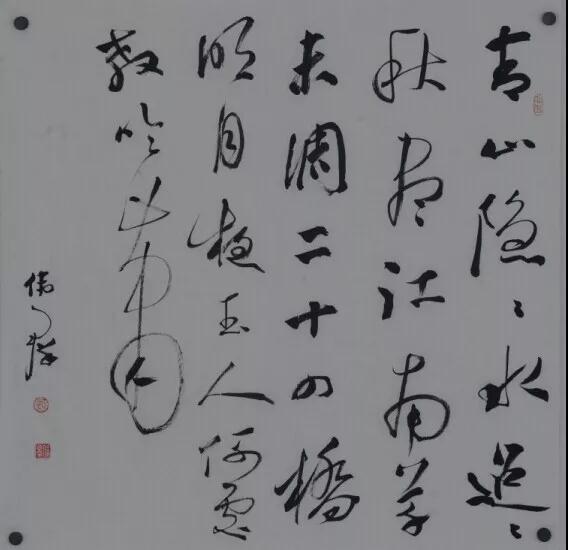 青山隐〻水迢〻
秋尽江南草
未凋二十四桥
明月夜玉人何处
教吹箫